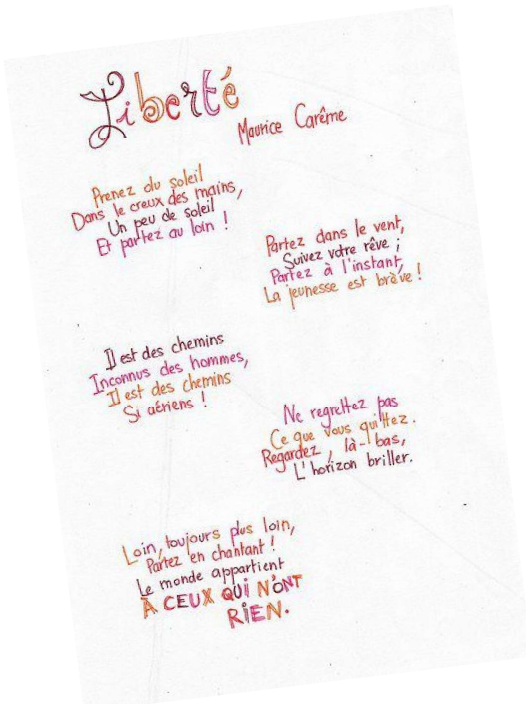 Liberté
Maurice Carême
Prenez du soleil
Dans le creux des mains,
Un peu de soleil
Et partez au loin !
Partez dans le vent,
Suivez votre rêve ;
Partez à l'instant,
La jeunesse est brève !
Il est des chemins
Inconnus des hommes,
Il est des chemins
Si aériens !
Ne regrettez pas
Ce que vous quittez.
Regardez, là-bas,
L'horizon briller.
Loin, toujours plus loin,
Partez en chantant !
Le monde appartient
À CEUX QUi N'ONT
RiEN.